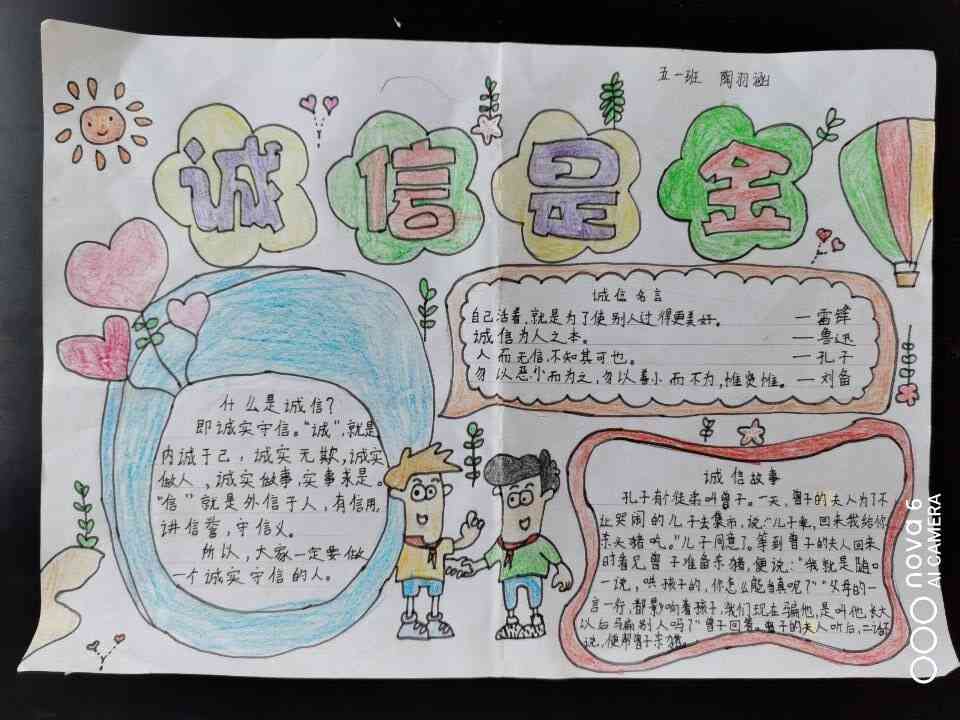 五一班 陶羽涵
诚信是金
什么是诚信?
即诚实守信。“诚”,就是
内诚于己,诚实无欺,诚实
做人,诚实做事,实事求是。
“信”就是外信于人,有信用,
讲信誉,守信义。
所以,大家一定要做
一个诚实守信的人。
诚信名言
自己活着,就是为了使别人过得更美好。 —雷锋
诚信为人之本。 —鲁迅
人而无信,不知其可也。 —孔子
勿以恶小而为之,勿以善小而不为,惟贤惟。 —刘备
诚信故事
孔子有个徒弟叫曾子。一天,曾子的夫人为了不
让哭闹的儿子去集市,说:“儿子乖,回来我给你
杀头猪吃。”儿子同意了。等到曾子的夫人回来
时看见曾子准备杀猪,便说:“我就是随口
一说,哄孩子的,你怎么能当真呢?”“父母的一
言一行,都影响着孩子,我们现在骗他,是叫他长大
以后骗别人吗?”曾子回答。曾子的夫人听后,二话
说,便帮曾子杀猪。
nova 6
AI CAMERA